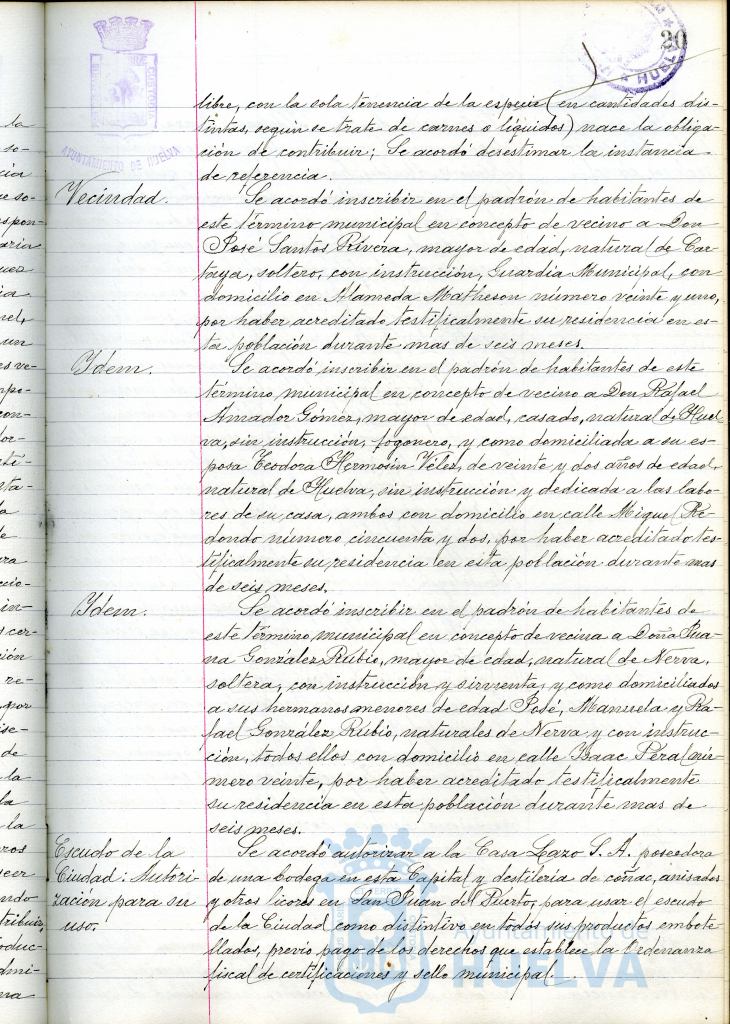 20
AYUNTAMIENTO DE HUELVA
HUELVA
libre, con la sola tenencia de la especie (en cantidades dis-
tintas, seguin se trate de carnes o líquidos) nace la obliga-
ción de contribuir; Se acordó desestimar la instancia
de referencia.
Vecindad.
Se acordó inscribir en el padrón de habitantes de
este término municipal en concepto de vecino a Don
José Santos Rivera, mayor de edad, natural de Car-
taya, soltero, con instrucción, Guardia Municipal, con
domicilio en Alameda Matheson número veinte y uno,
por haber acreditado testificalmente su residencia en es-
ta población durante mas de seis meses.
Idem.
Se acordó inscribir en el padrón de habitantes de este
término municipal en concepto de vecino a Don Rafael
Amador Gómez, mayor de edad, casado, natural de Huel-
va, sin instrucción, fogonero, y como domiciliada a su es-
posa Teodora Hermosin Vélez, de veinte y dos años de edad,
natural de Huelva, sin instrucción y dedicada a las labo-
res de su casa, ambos con domicilio en calle Miguel Re-
dondo número cincuenta y dos, por haber acreditado tes-
tificalmente su residencia en esta población durante mas
de seis meses.
Idem.
Se acordó inscribir en el padrón de habitantes de
este término municipal en concepto de vecina a Doña Jua-
na González Rubio, mayor de edad, natural de Nerva,
soltera, con instrucción y sirvienta, y como domiciliados
a sus hermanos menores de edad José, Manuela y Ra-
fael González Rubio, naturales de Nerva y con instruc-
ción, todos ellos con domicilio en calle Isaac Peral nú-
mero veinte, por haber acreditado testificalmente
su residencia en esta población durante mas de
seis meses.
Escudo de la
Ciudad: Autori-
zación para su
uso.
Se acordó autorizar a la Casa Lazo S. A. poseedora
de una bodega en esta Capital y destilería de coñac, anisados
y otros licores en San Juan del Puerto, para usar el escudo
de la Ciudad como distintivo en todos sus productos embote-
llados, previo pago de los derechos que establece la Ordenanza
fiscal de certificaciones y sello municipal.
Ayuntamiento de
HUELVA